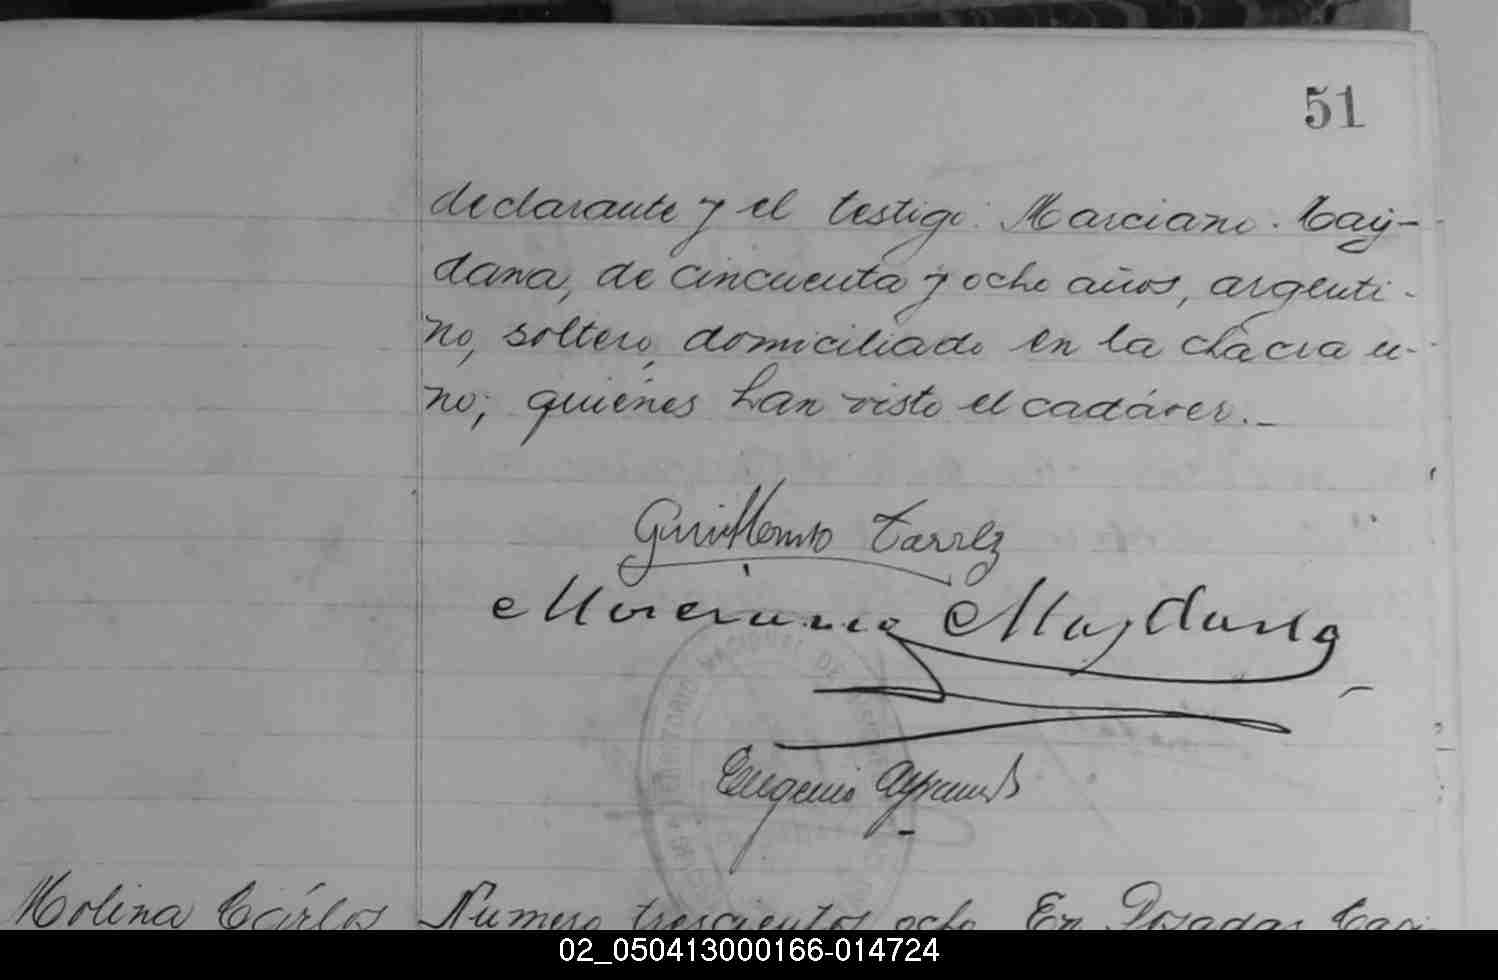 51
declarante y el testigo: Marciano May-
dana, de cincuenta y ocho años, argenti-
no, soltero, domiciliado en la chacra u-
no; quiénes han visto el cadáver._
Guillermo
Marciano Maydana
TERRITORIO NACIONAL DE
Eugenio
Molina Cárlos
Número trescientos ocho. En Posadas, Capi-
02_050413000166-014724